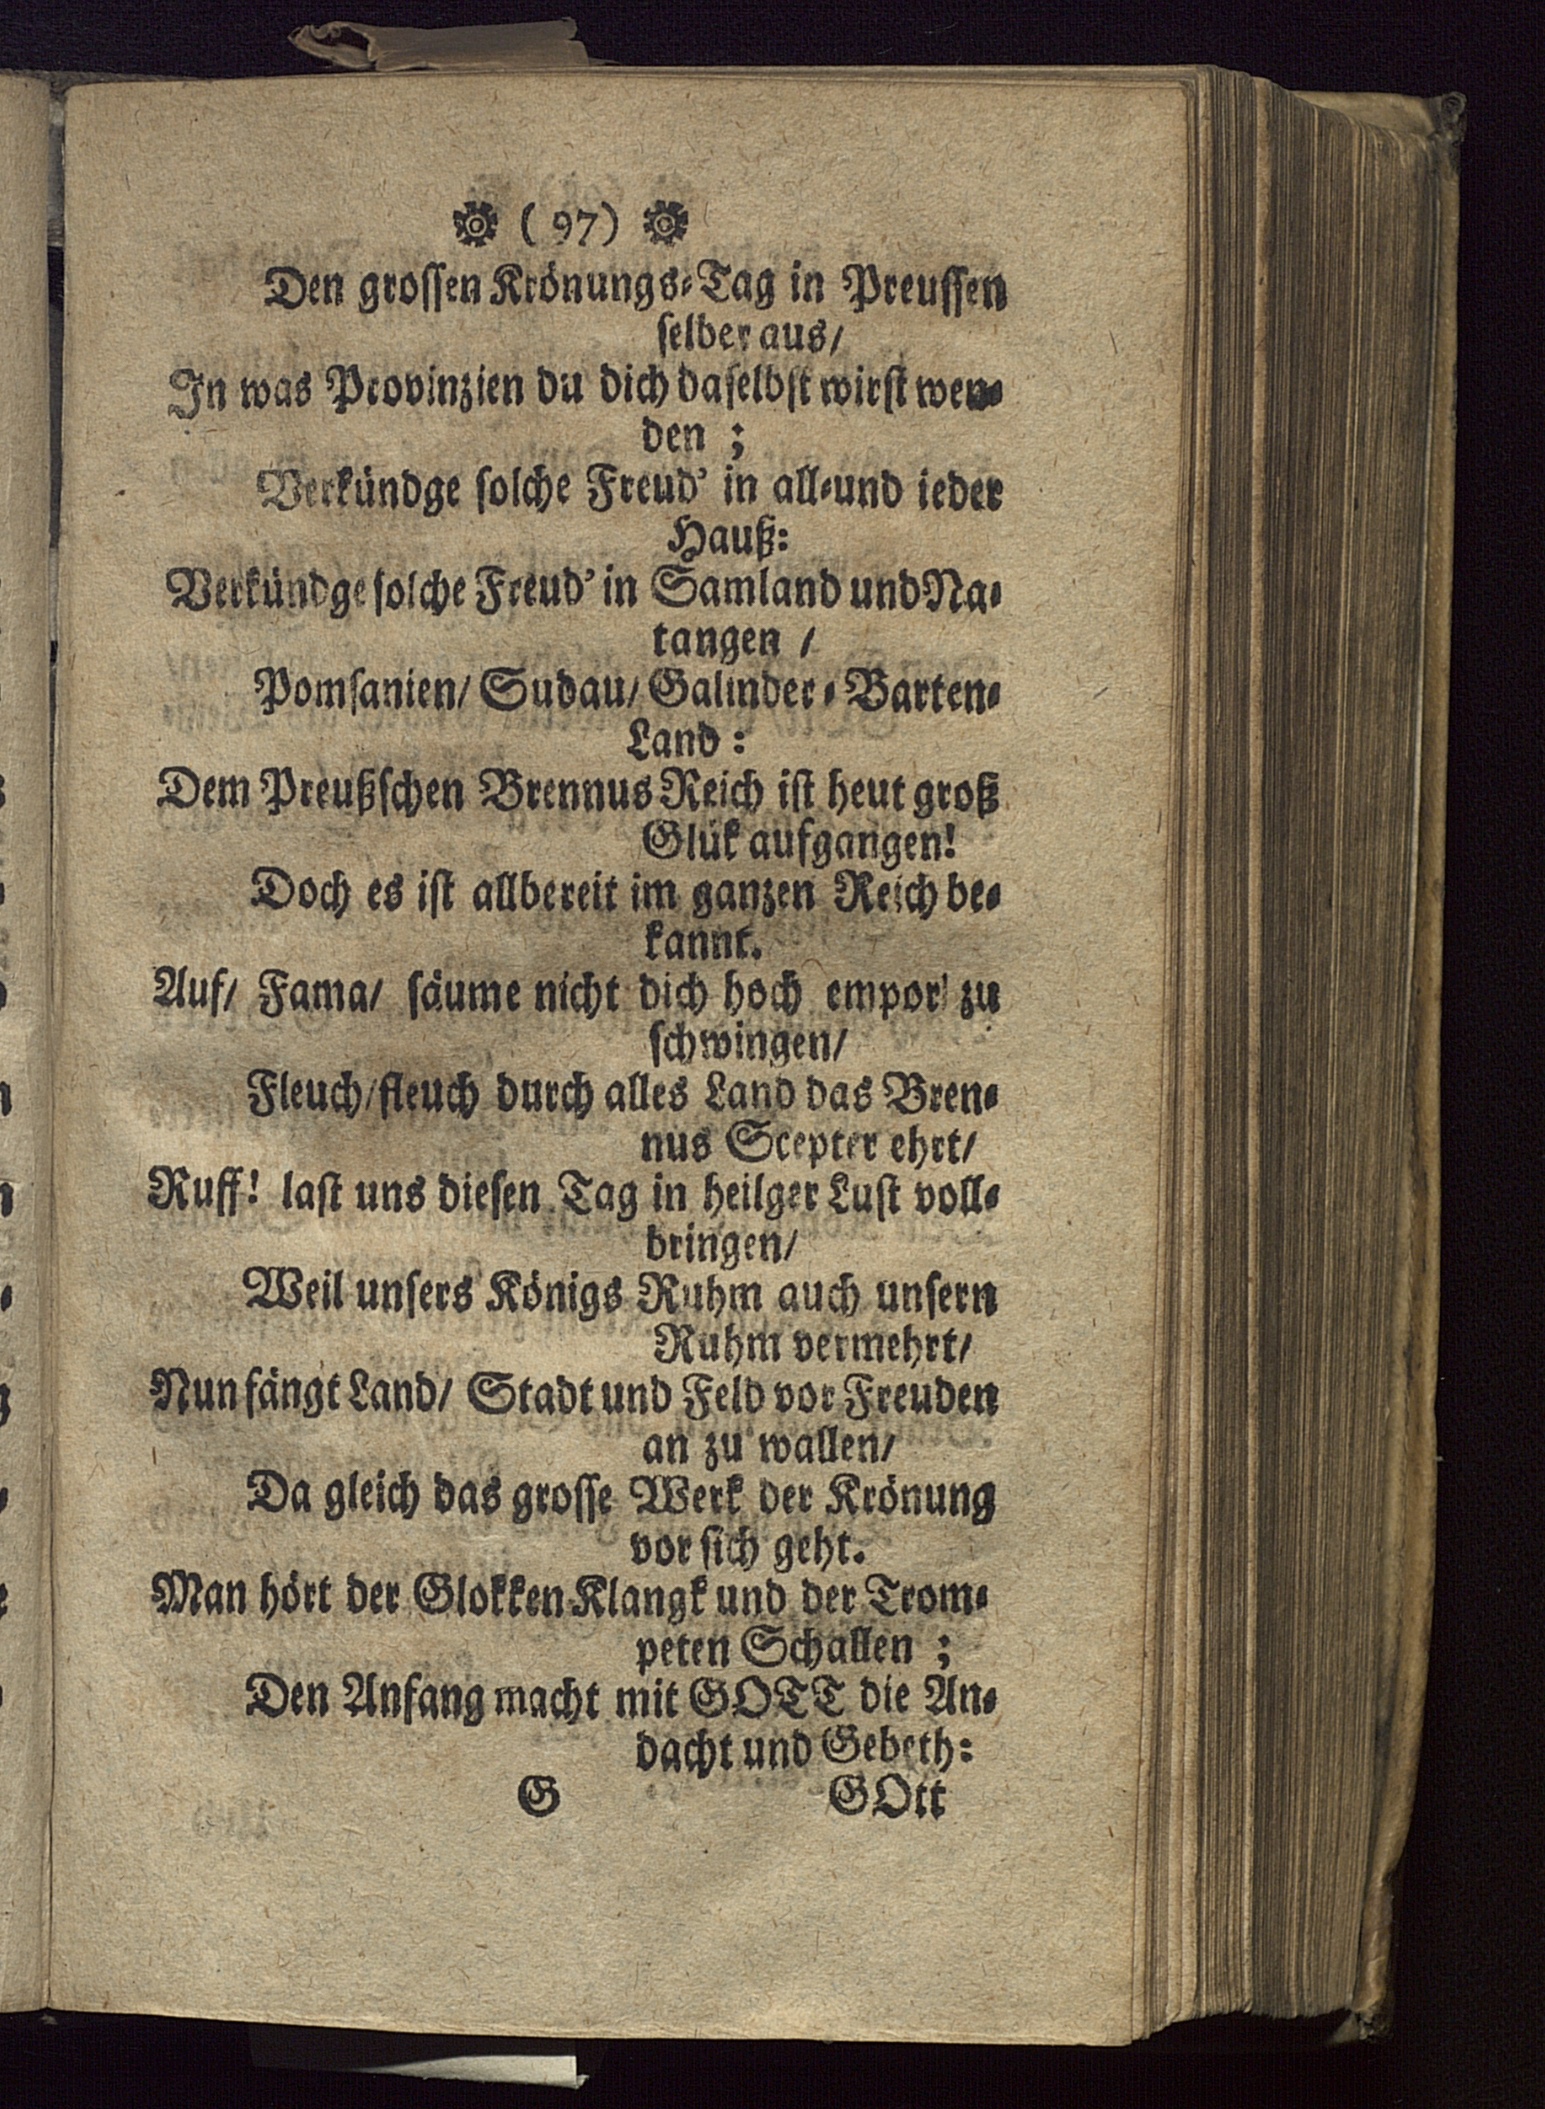 (97)
Den grossen Krönungs-Tag in Preussen
selber aus/
In was Provinzien du dich daselbst wirst wen-
den ;
Verkündge solche Freud' in all-und ieder
Hauß:
Verkündge solche Freud' in Samland und Na-
tangen /
Pomsanien/ Sudau/ Galinder-Barten-
Land :
Dem Preußschen Brennus Reich ist heut groß
Glük aufgangen!
Doch es ist allbereit im ganzen Reich be-
kannt.
Auf/ Fama/ säume nicht dich hoch empor zu
schwingen/
Fleuch/fleuch durch alles Land das Bren-
nus Scepter ehrt/
Ruff! last uns diesen Tag in heilger Lust voll-
bringen/
Weil unsers Königs Ruhm auch unsern
Ruhm vermehrt/
Nun fängt Land/ Stadt und Feld vor Freuden
an zu wallen/
Da gleich das grosse Werk der Krönung
vor sich geht.
Man hört der Glokken Klangk und der Trom-
peten Schallen ;
Den Anfang macht mit GOTT die An-
dacht und Gebeth:
G GOtt